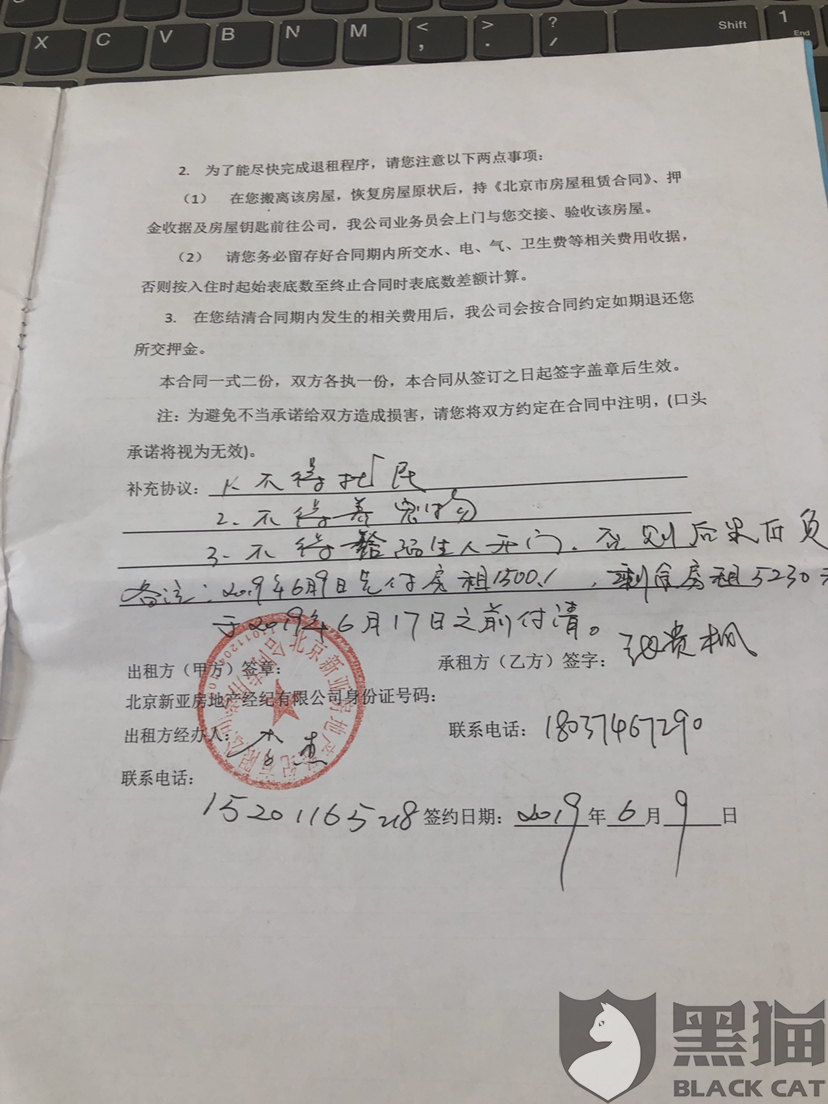 X C V B N M < , > . ? / Shift 1 End
2. 为了能尽快完成退租程序，请您注意以下两点事项：
（1） 在您搬离该房屋，恢复房屋原状后，持《北京市房屋租赁合同》、押
金收据及房屋钥匙前往公司，我公司业务员会上门与您交接、验收该房屋。
（2） 请您务必留存好合同期内所交水、电、气、卫生费等相关费用收据，
否则按入住时起始表底数至终止合同时表底数差额计算。
3. 在您结清合同期内发生的相关费用后，我公司会按合同约定如期退还您
所交押金。
本合同一式二份，双方各执一份，本合同从签订之日起签字盖章后生效。
注：为避免不当承诺给双方造成损害，请您将双方约定在合同中注明，(口头
承诺将视为无效)。
补充协议： 1. 不得扰民
2. 不得养宠物
3. 不得给陌生人开门，否则后果自负
备注：2019年6月9日先付房租1500，剩余房租5230元
于2019年6月17日之前付清。
出租方（甲方）签章： 承租方（乙方）签字：
北京新亚房地产经纪有限公司身份证号码：
出租方经办人： 联系电话： 18037467290
联系电话：
15201165218 签约日期： 2019年6月9日
北京新亚房地产经纪有限公司
黑猫
BLACK CAT